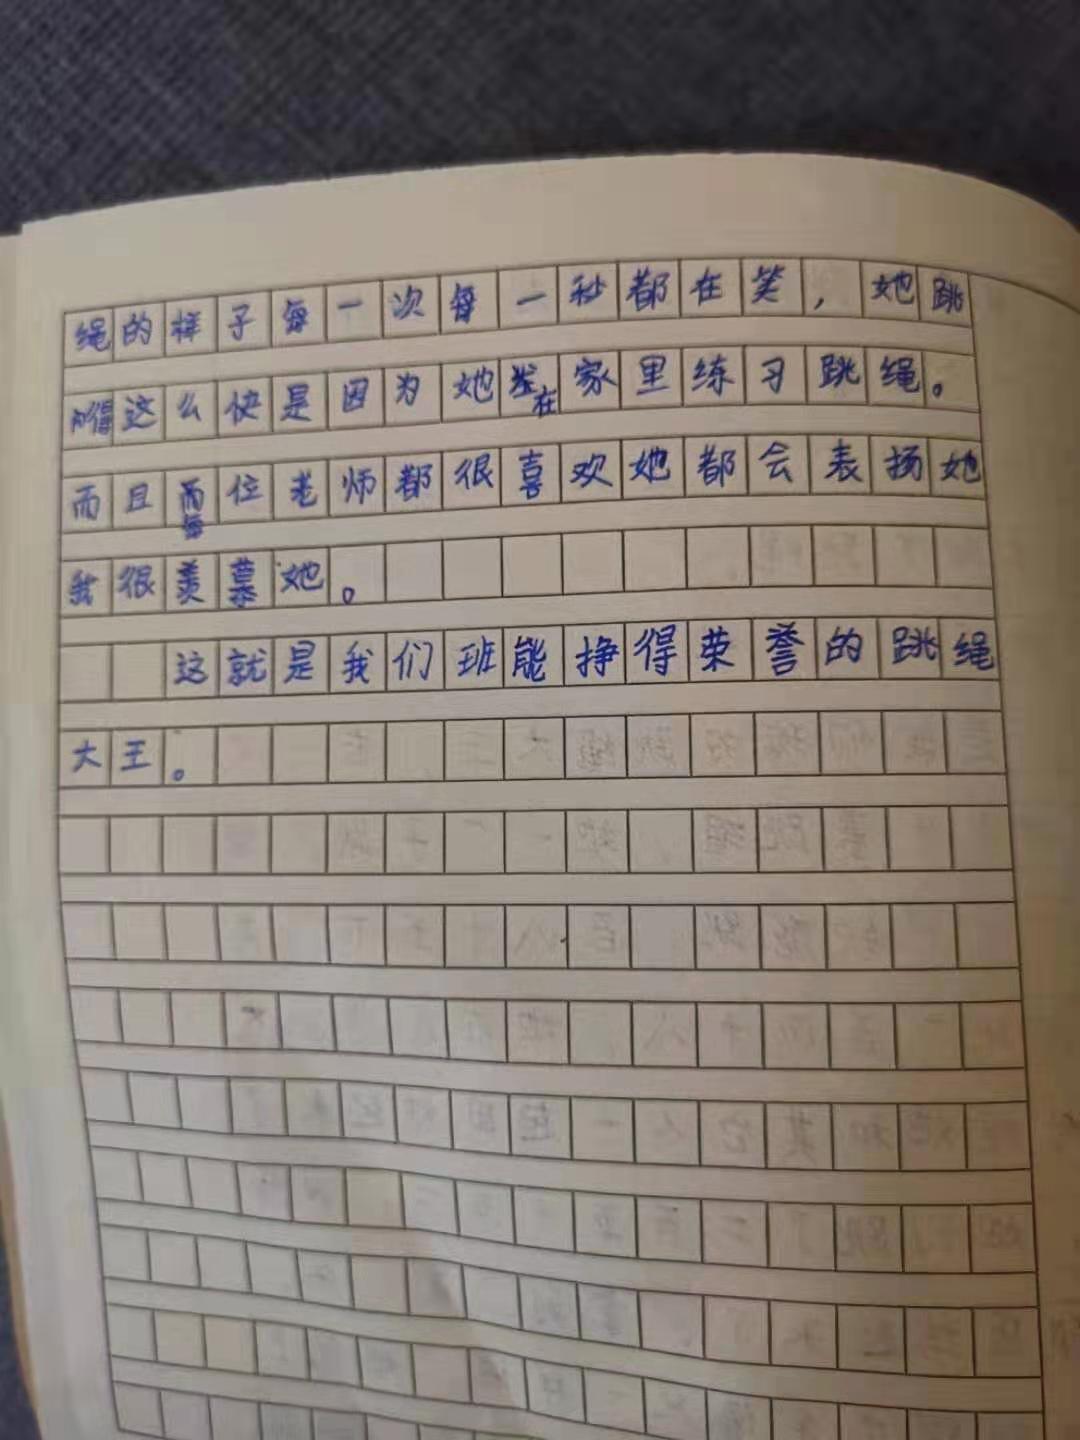 绳的样子每一次每一秒都在笑，她跳
得这么快是因为她在家里练习跳绳。
而且每位老师都很喜欢她都会表扬她
我很羡慕她。
这就是我们班能挣得荣誉的跳绳
大王。